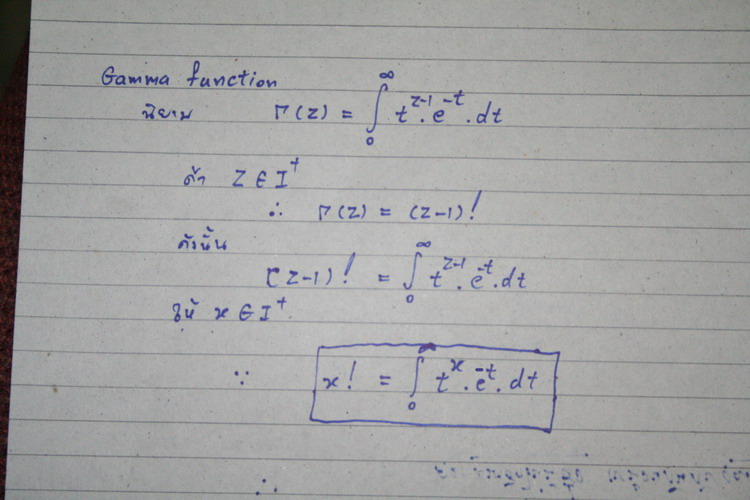 Gamma function
นิยาม Γ(z) = ∫₀^∞ t^(z-1) . e^(-t) . dt
ถ้า Z ∈ I⁺
∴ Γ(z) = (z-1)!
ดังนั้น
Γ(z-1)! = ∫₀^∞ t^(z-1) . e^(-t) . dt
ให้ x ∈ I⁺
∵ x! = ∫₀^∞ t^x . e^(-t) . dt
∴